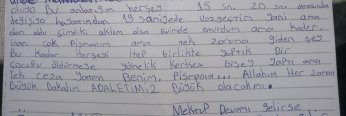 olması bu anlaşılsın herşey 15 sn. 20 sn. arasında
değişti hayatımdan 19 saniyede vazgeçtim yani ama
dan oldu şimdiki aklım olsa evimde otururdum ama kader..
inan çok pişmanım ama tek zaman giden şey
Bu Kadar Herşeyi Hep birlikte yaptık Bir
çocuğu öldürmeye yönelik Herkes bişey yaptı ama
Tek ceza yatan Benim, Pişmanım... Allahım Her zaman
Büyük Bakalım ADALETİMİZ Büyük olacakmı.
Mektup Devamı gelirse